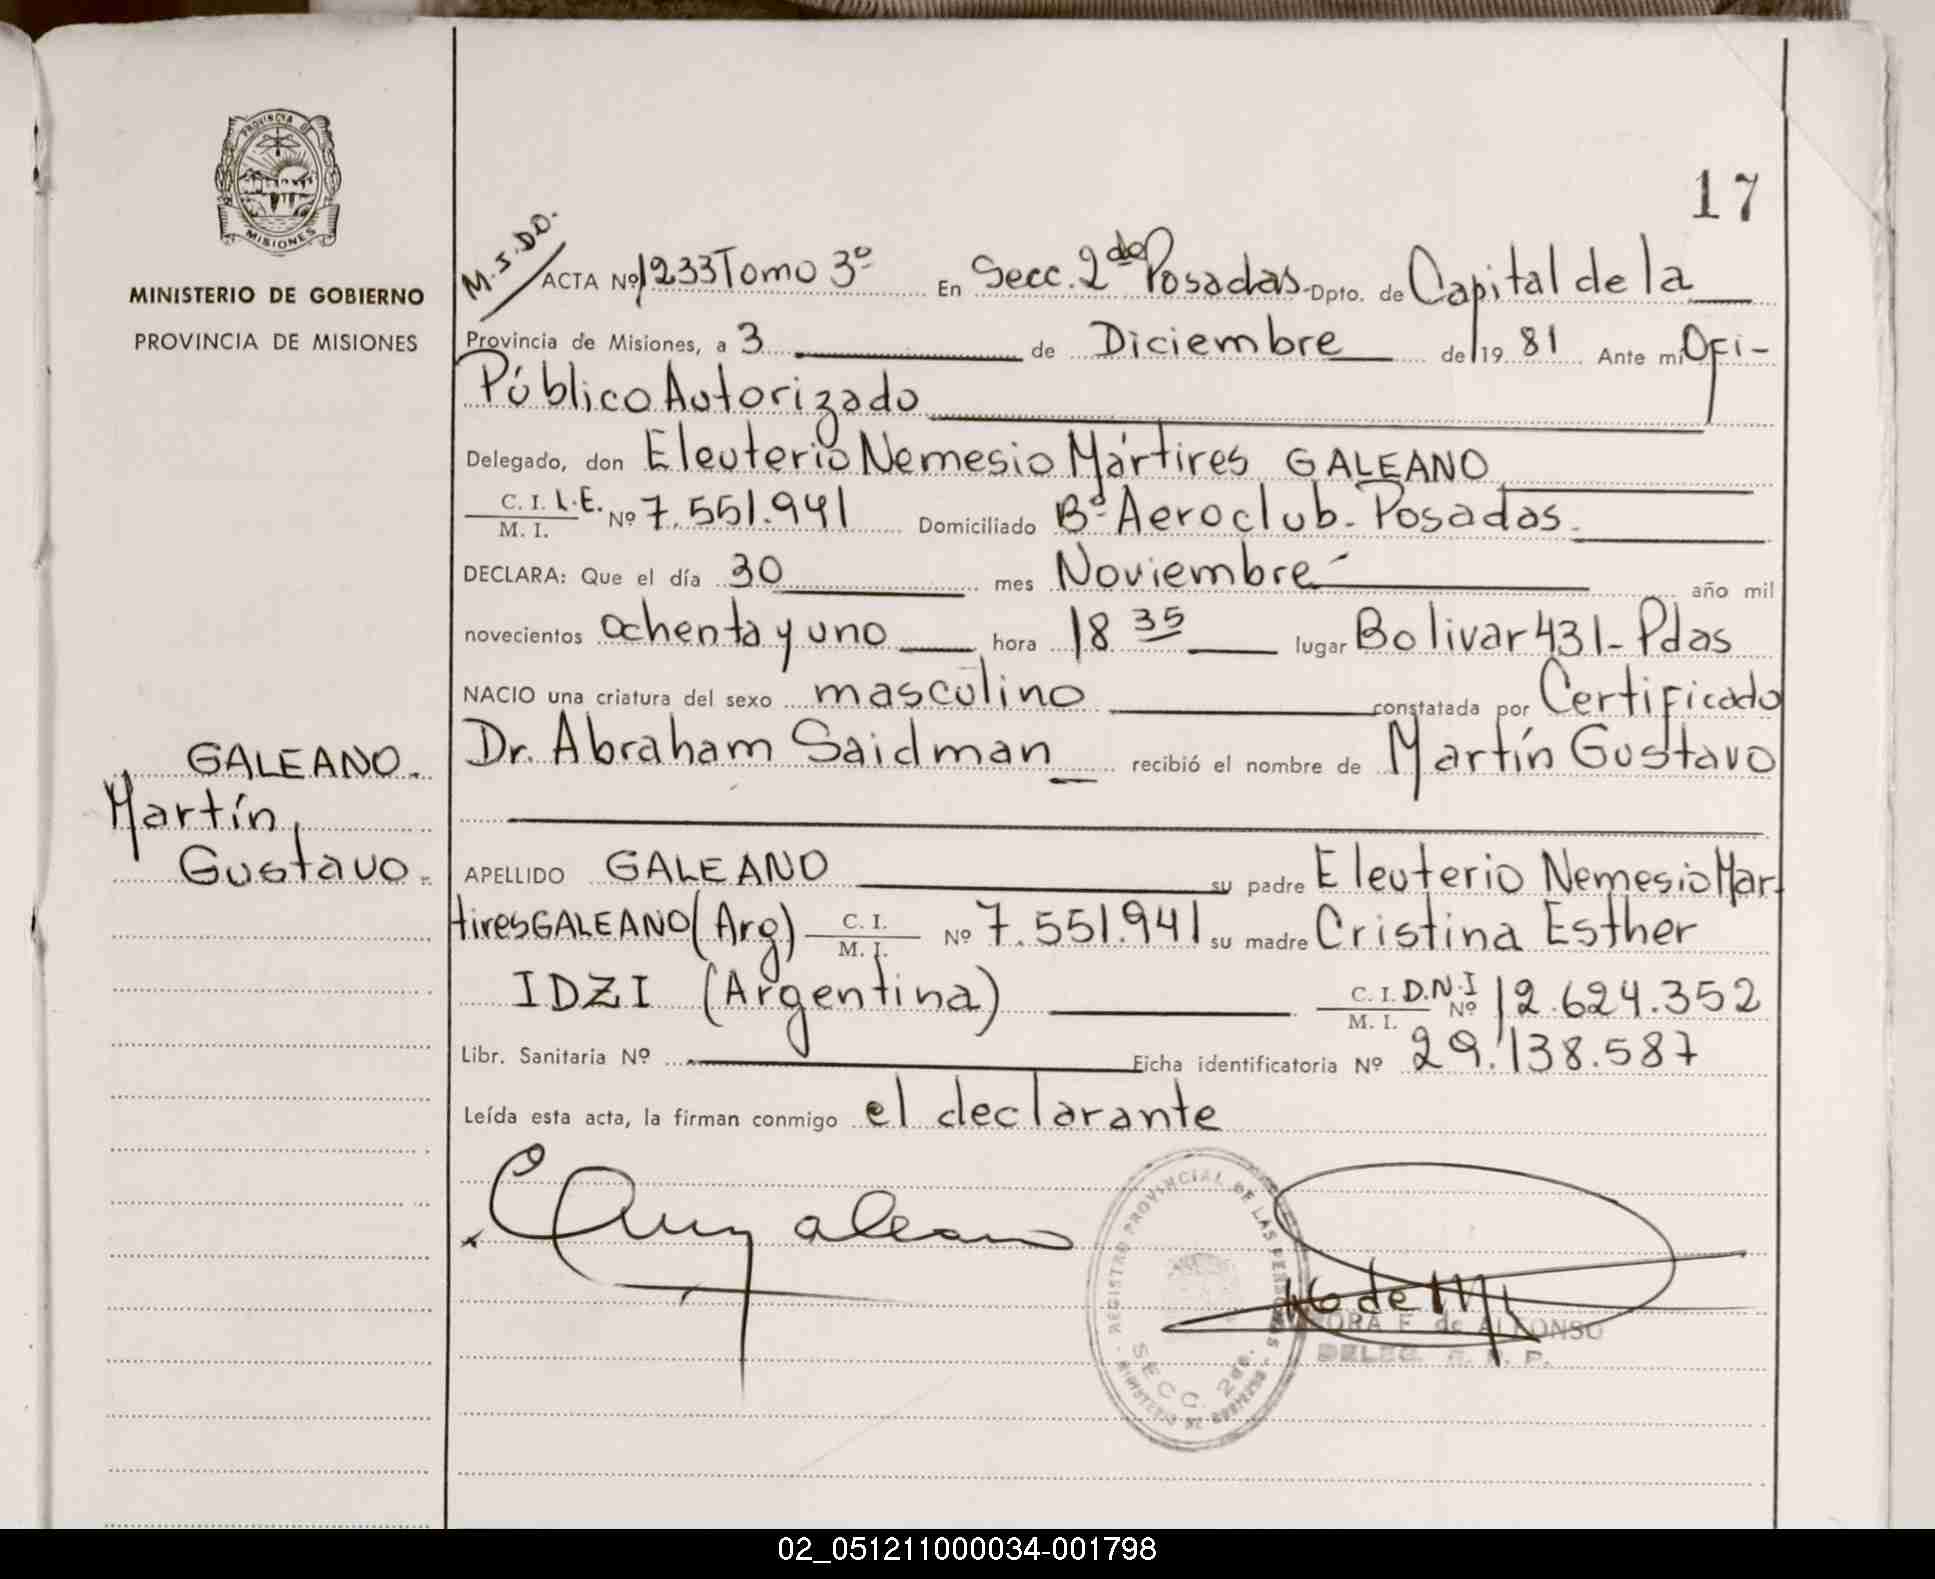 17
PROVINCIA DE
MISIONES
MINISTERIO DE GOBIERNO
PROVINCIA DE MISIONES
M.S.DO.
ACTA Nº 1233 Tomo 3º En Secc. 2da Posadas - Dpto. de Capital de la
Provincia de Misiones, a 3 de Diciembre de 19 81 Ante mí Ofi-
Público Autorizado
Delegado, don Eleuterio Nemesio Mártires GALEANO
C. I. L.E. Nº 7.551.941 Domiciliado Bº Aeroclub - Posadas.
M. I.
DECLARA: Que el día 30 mes Noviembre año mil
novecientos ochenta y uno hora 18 35 lugar Bolivar 431 - Pdas
NACIO una criatura del sexo masculino constatada por Certificado
Dr. Abraham Saidman recibió el nombre de Martín Gustavo
GALEANO.
Martín
Gustavo.
APELLIDO GALEANO su padre Eleuterio Nemesio Mar-
tires GALEANO (Arg) C. I. Nº 7.551.941 su madre Cristina Esther
M. I.
IDZI (Argentina) C. I. D.N.I Nº 12.624.352
M. I.
Libr. Sanitaria Nº Ficha identificatoria Nº 29.138.587
Leída esta acta, la firman conmigo el declarante
Galeano
REGISTRO PROVINCIAL DE LAS PERSONAS
MINISTERIO DE GOBIERNO
SECC. 2da.
F. de ALFONSO
DELEG. R. P. P.
02_051211000034-001798